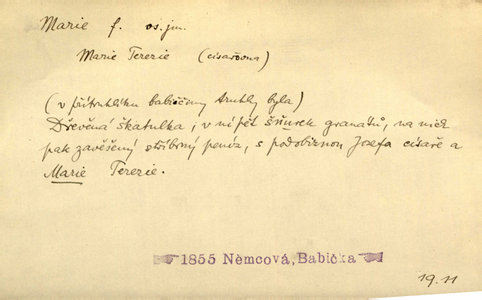 Marie f. os. jm.
Marie Terezie (císařovna)
(v přítruhlíku babiččiny truhly byla)
Dřevěná škatulka, v ní pět šňůrek granátů, na nich
pak zavěšený stříbrný peníz, s podobiznou Josefa císaře a
Marie Terezie.
1855 Němcová, Babička
19.11